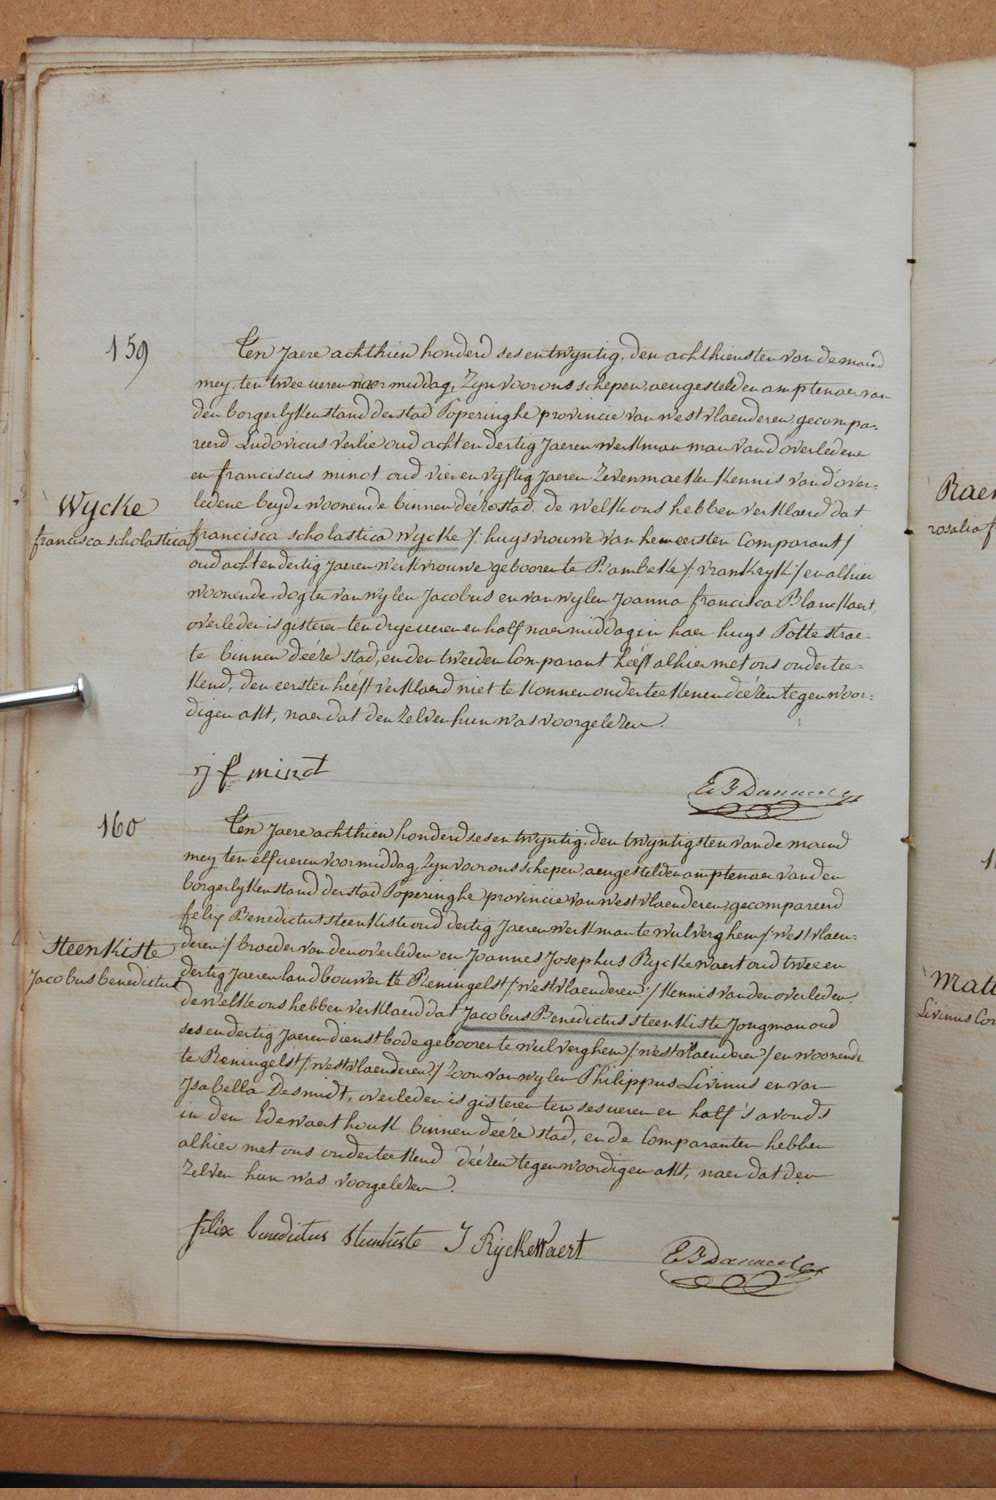 159
Ten jaere achthien honderd ses en twyntig, den achthiensten van de maend
mey, ten twee ueren naer middag, Zyn voor ons schepen, aengestelden amptenaer van
den borgerlyken stand der stad Poperinghe provincie van westvlaenderen, gecompa-
reerd Ludovicus verlie oud acht en dertig jaeren werkman man vand'overledene
en franciscus minot oud vier en vyftig jaeren Zevenmaeker kennis vand'over-
ledene beyde woonende binnen deéze stad, de welke ons hebben verklaerd dat
Wycke
francisca scholastica
francisca scholastica Wycke /: huysvrouwe van hem eersten Comparant/
oud acht en dertig jaeren werkvrouwe gebooren te Bambeke /: vrankryk:/ en alhier
woonende dogter van wylen Jacobus en van wylen Joanna francisca Blanckaert,
overleden is gisteren ten drye ueren en half naer middag in haer huys Potte strae-
te binnen deéze stad, en den tweeden Comparant heéft alhier met ons ondertee-
kend, den eersten heéft verklaerd niet te konnen onderteekenen deézen tegenwoor-
digen akt, naer dat den zelven hun was voorgelezen.
f minot
160
Ten jaere achthien honderd ses en twyntig, den twyntigsten van de maend
mey ten elf ueren voormiddag, Zyn voor ons schepen, aengestelden amptenaer van den
borgerlyken stand der stad Poperinghe provincie van westvlaenderen, gecompareerd
felix Benedictus steenkiste oud dertig jaeren werkman te wulverghem /: westvlaen-
deren:/ broeder van den overleden en Joannes Josephus Ryckewaert oud twee en
dertig jaeren landbouwer te Reningelst /: westvlaenderen:/ kennis van den overleden,
Steenkiste
Jacobus benedictus
de welke ons hebben verklaerd dat Jacobus Benedictus steenkiste Jongman oud
ses en dertig jaeren dienstbode gebooren te wulverghem /: westvlaenderen:/ en woonende
te Reningelst /: westvlaenderen:/ Zoon van wylen Philippus Livinus en van
Isabella Desmidt, overleden is gisteren ten ses ueren en half 's avonds
in den Edewaert houk binnen deéze stad, en de Comparanten hebben
alhier met ons onderteekend deézen tegenwoordigen akt, naer dat den
zelven hun was voorgelezen.
felix benedictus steenkiste J Ryckewaert
Raem
rosalia f
Livinus Cor